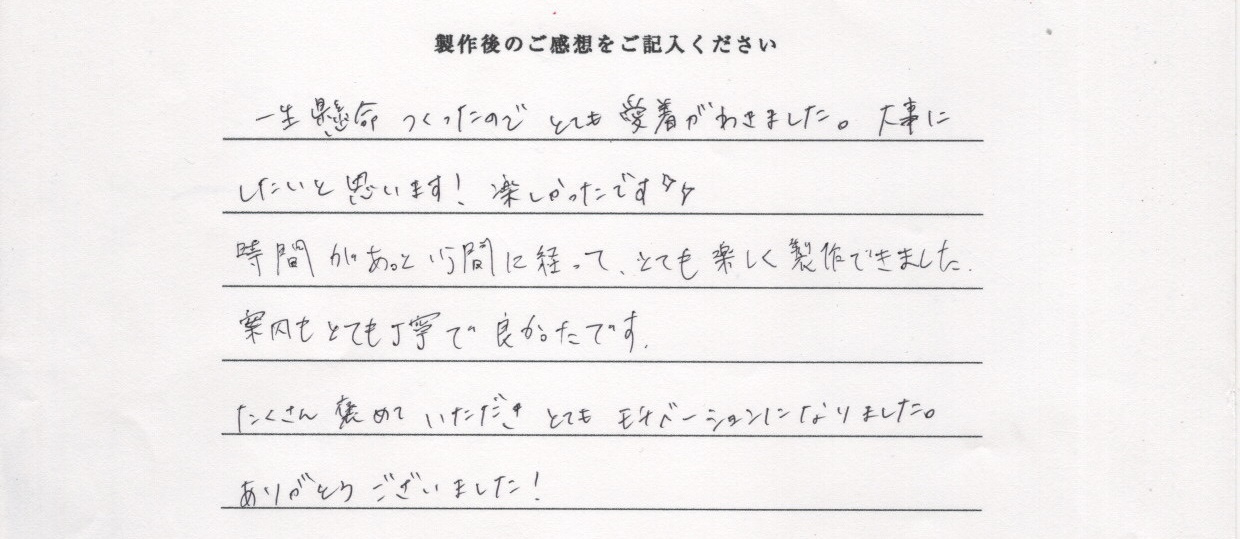 製作後のご感想をご記入ください
一生懸命 つくったので とても 愛着がわきました。 大事に
したいと思います! 楽しかったです
時間があっという間に経って、とても楽しく製作できました.
案内もとても丁寧で良かったです.
たくさん褒めていただき とても モチベーションになりました。
ありがとうございました!